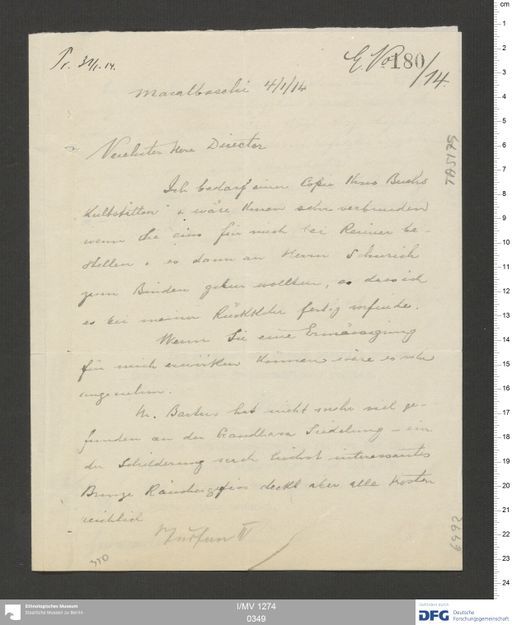 Pr. 31/1.14.
E. No 180/14.
Maralbaschi 4/1/14
Verehrter Herr Director
Ich bedarf einer Copie Ihres Buchs
Kultstätten & wäre Ihnen sehr verbunden
wenn Sie eins für mich bei Reimer be-
stellen & es dann an Herrn Schurich
zum Binden geben wollten, so dass ich
es bei meiner Rückkehr fertig vorfinde.
Wenn Sie eine Ermässigung
für mich erwirken können wäre es sehr
angenehm.
H. Bartus hat nicht mehr viel ge-
funden an der Gandhara Siedelung – ein
der Schilderung nach höchst interessantes
Bronze Räuchergefäss deckt aber alle Kosten
reichlich
Turfan IV
TA 5179
6992
I/MV 1274
0349
Ethnologisches Museum
Staatliche Museen zu Berlin
DFG
Deutsche
Forschungsgemeinschaft
cm
1
2
3
4
5
6
7
8
9
10
11
12
13
14
15
16
17
18
19
20
21
22
23
24